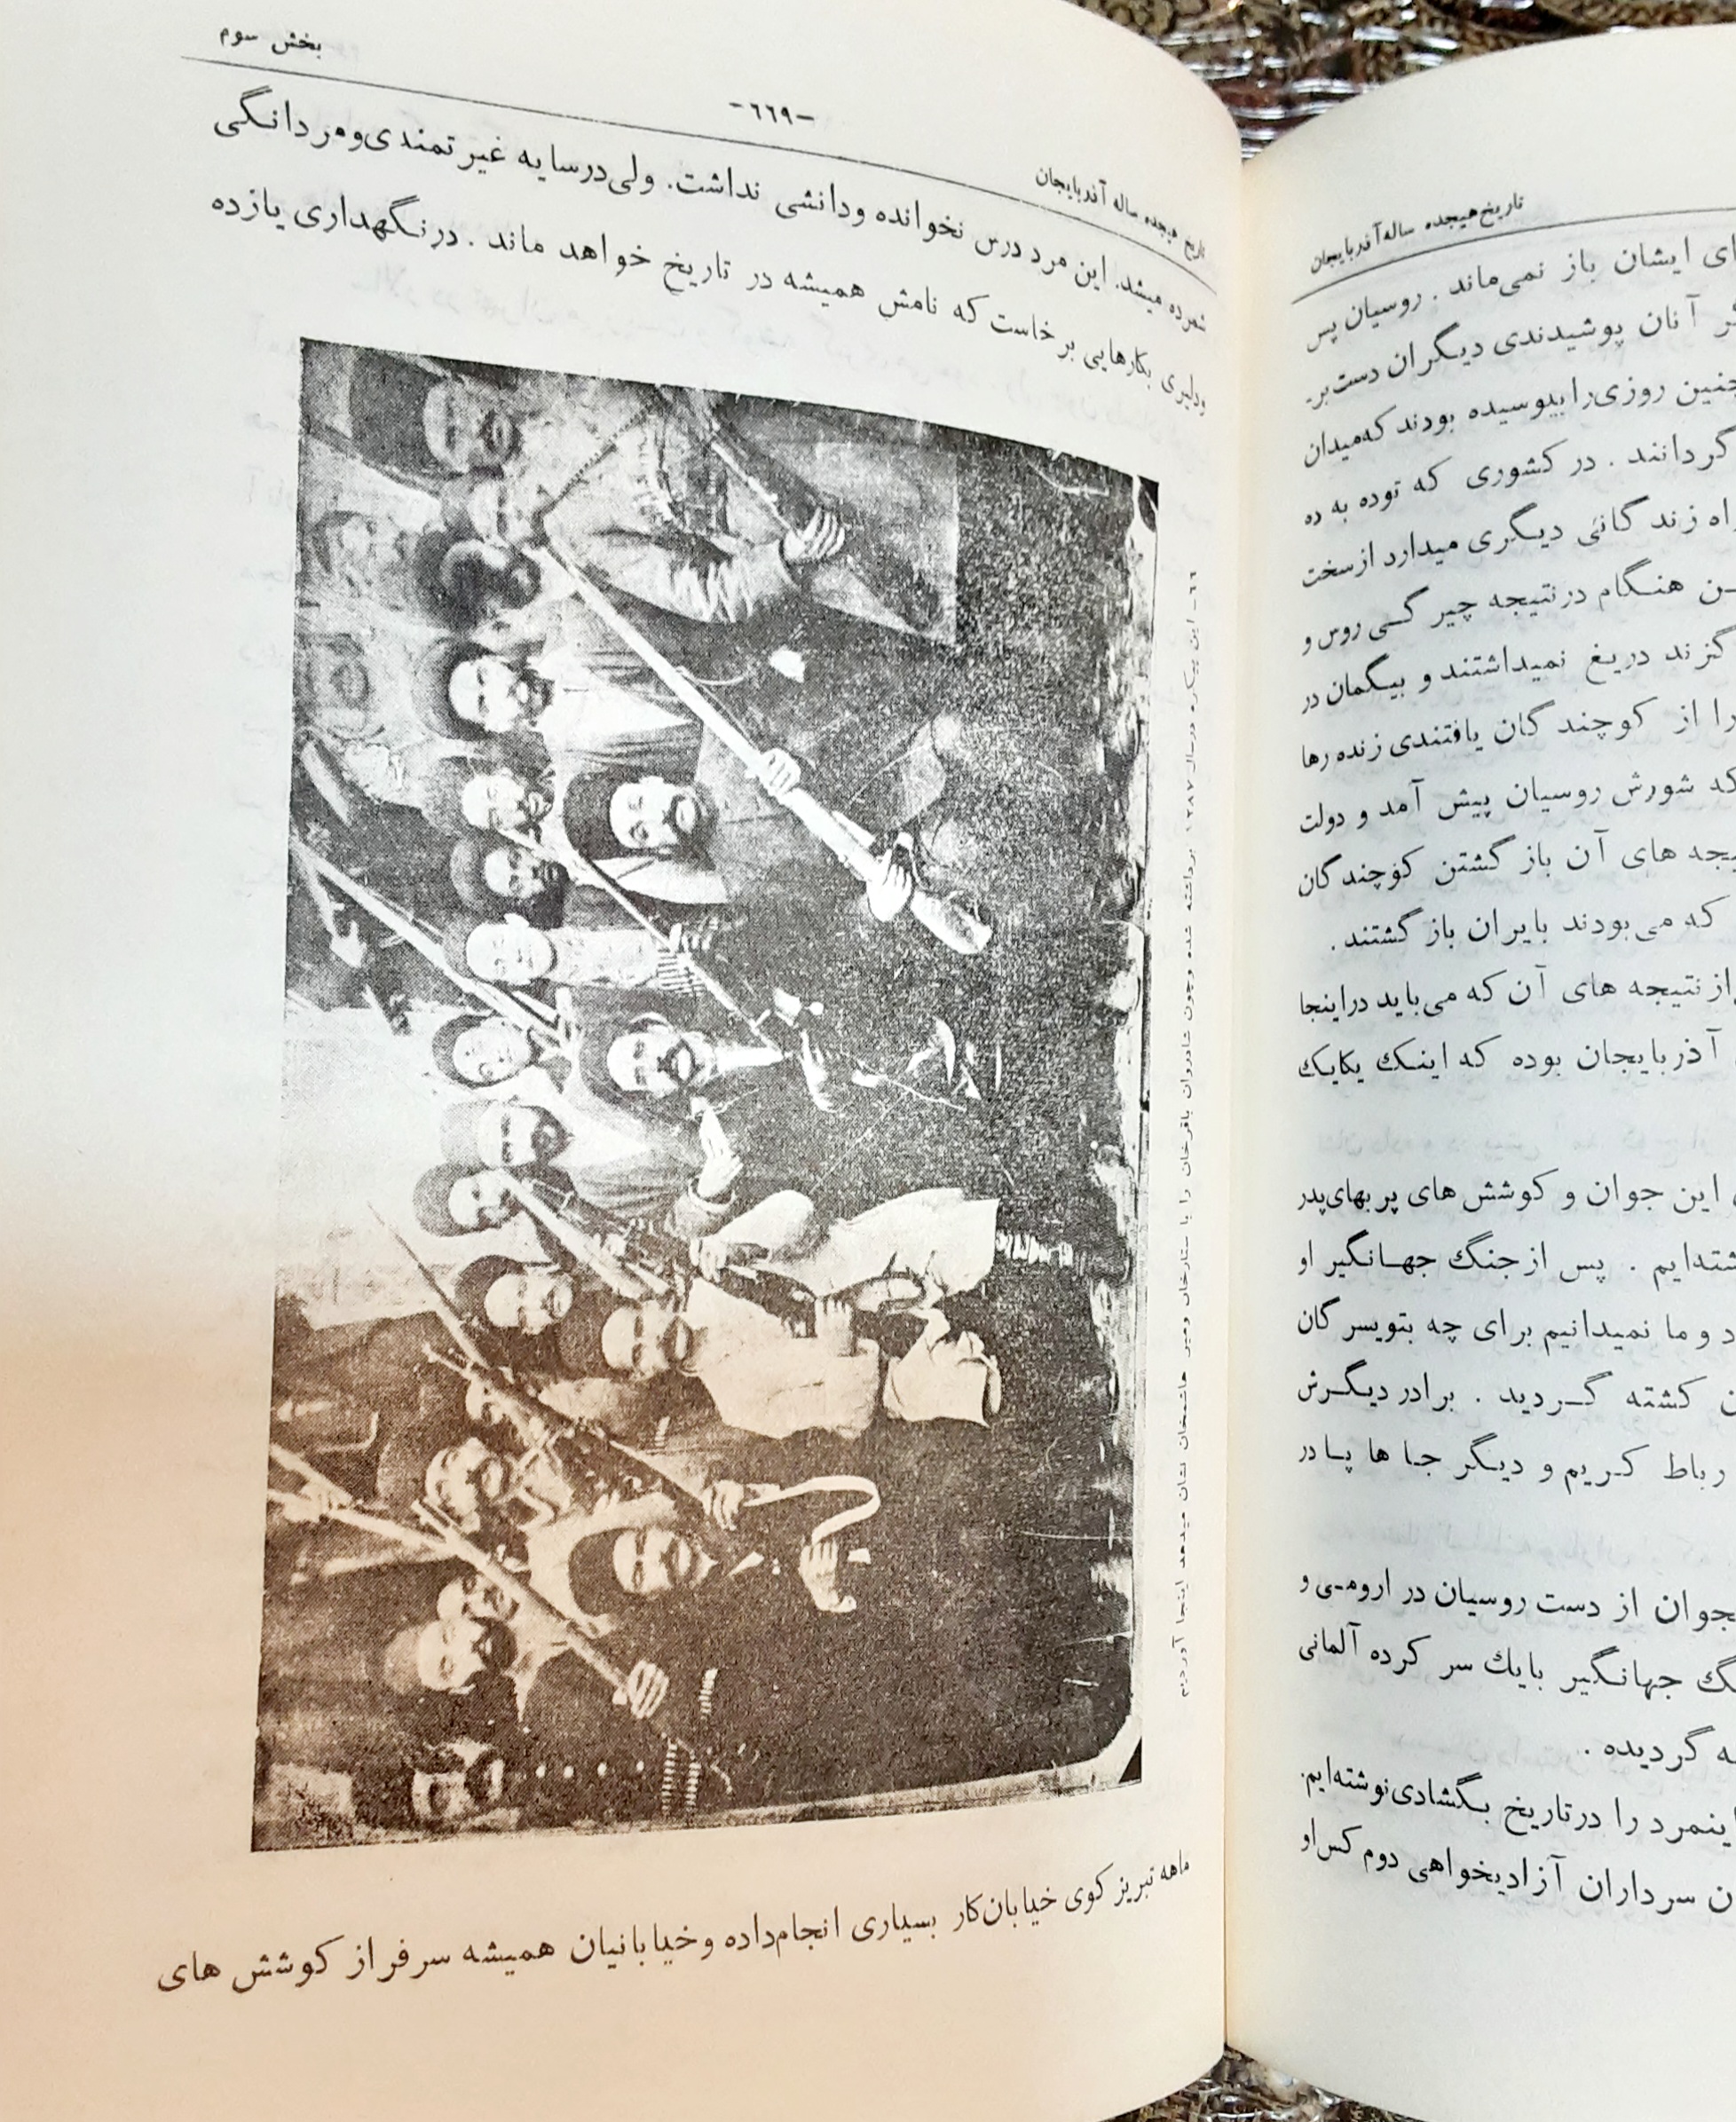 تاریخ هیجده ساله آذربایجان
ای ایشان باز نمی‌ماند . روسیان پس
آنان پوشیدندی دیگران دست بر-
چنین روزی را بیوسیده بودند که میدان
گردانند . در کشوری که توده به ده
راه زندگانئی دیگری میدارد از سخت
هنگام در نتیجه چیرگی روس و
گزند دریغ نمیداشتند و بیگمان در
را از کوچندگان یافتندی زنده رها
که شورش روسیان پیش آمد و دولت
نتیجه های آن باز گشتن کوچندگان
که می‌بودند بایران باز گشتند .
از نتیجه های آن که می‌باید در اینجا
آذربایجان بوده که اینک یکایک
این جوان و کوشش های پر بهای پدر
شته‌ایم . پس از جنگ جهانگیر او
و ما نمیدانیم برای چه بتویسرگان
کشته گردید . برادر دیگرش
رباط کریم و دیگر جا ها پا در
جوان از دست روسیان در ارومی و
جهانگیر بایک سر کرده آلمانی
گردیده .
اینمرد را در تاریخ بگشادی نوشته‌ایم.
سرداران آزادیخواهی دوم کس او
بخش سوم
-٦٦٩-
تاریخ هیجده ساله آذربایجان
شمرده میشد. این مرد درس نخوانده ودانشی نداشت. ولی درسایه غیرتمندی ومردانگی
ودلیری بکارهایی برخاست که نامش همیشه در تاریخ خواهد ماند . درنگهداری یازده
این پیکره در سال ۱۲۸۷ برداشته شده وچون شادروان باقرخان را با ستارخان ومیر هاشمخان نشان میدهد اینجا آوردیم
ماهه تبریز کوی خیابان کار بسیاری انجام داده و خیابانیان همیشه سرفراز کوشش های